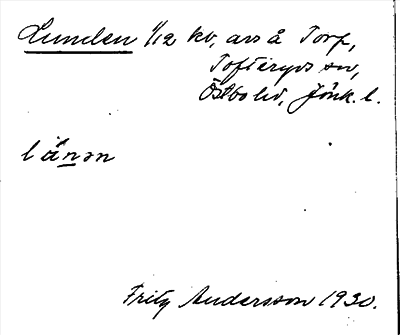 Lunden 1/12 kv, avs å Torp,
Tofteryds sn,
Östbo hd, Jönk. l.
länən
Fritz Andersson 1930.